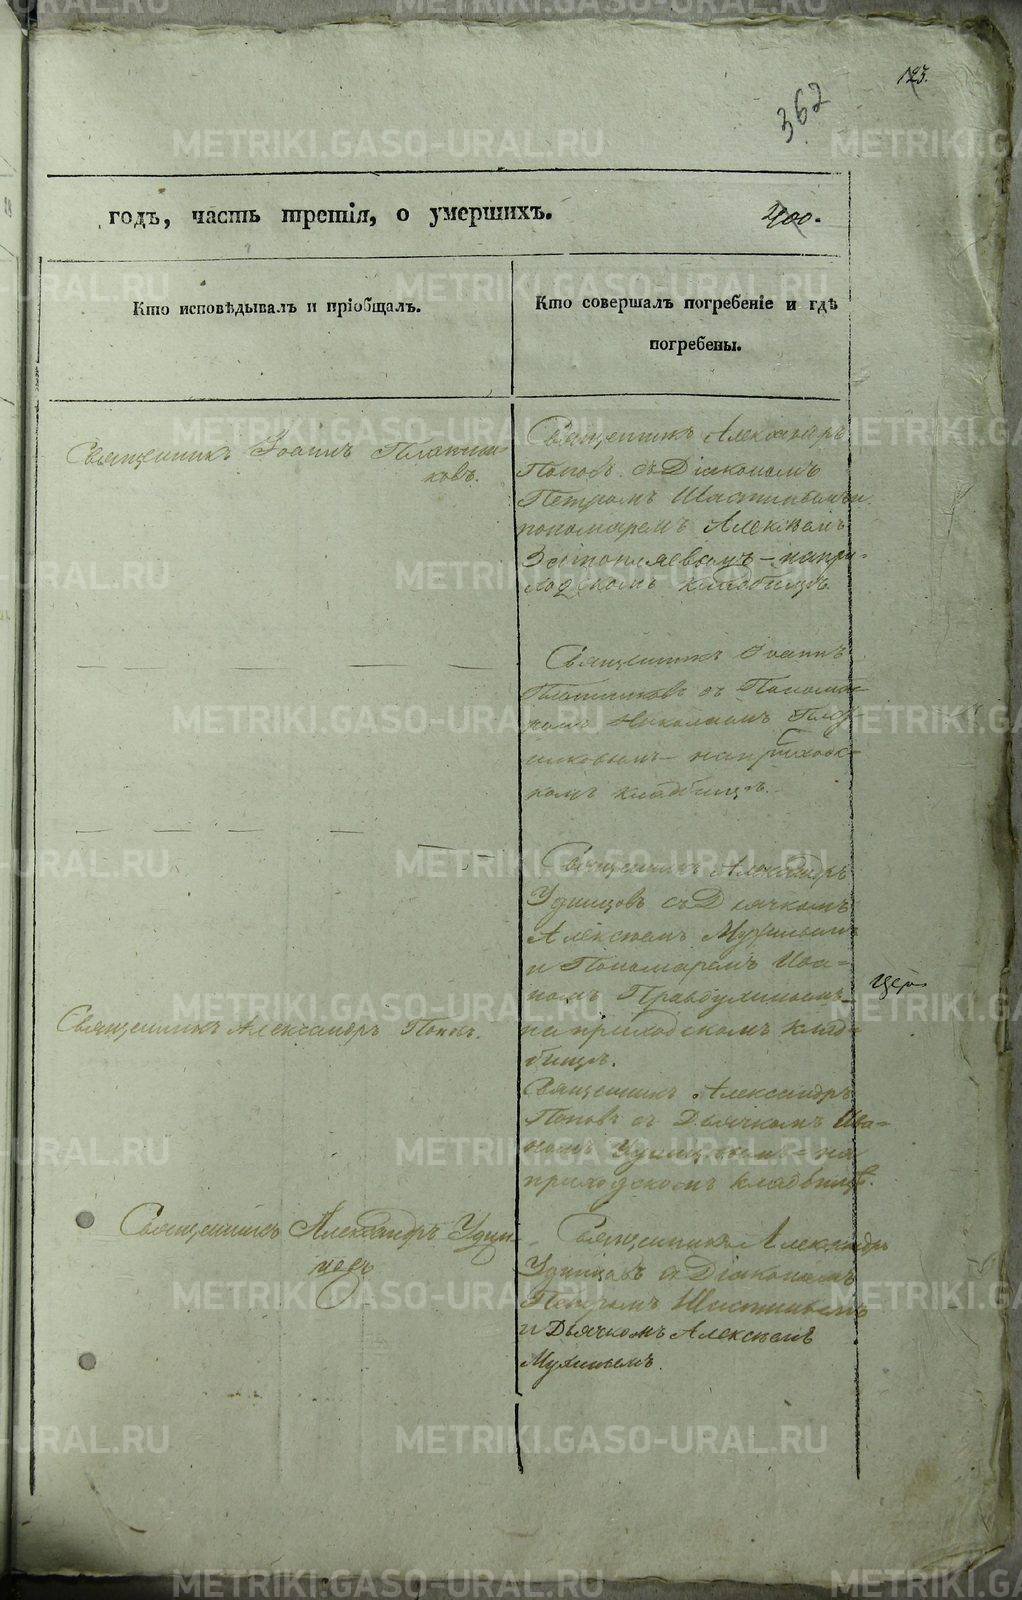 123.
362
годъ, часть третія, о умершихъ.
400.
Кто исповѣдывалъ и пріобщалъ.
Кто совершалъ погребеніе и гдѣ
погребены.
Священникъ Іоаннъ Плотни-
ковъ.
Священникъ Александръ
Поповъ съ Діакономъ
Петромъ Шастинымъ и
пономаремъ Алексѣемъ
на при-
ходскомъ кладбищѣ.
Священникъ Іоаннъ
Плотниковъ съ Понома-
ремъ Николаемъ
на приходс-
комъ кладбищѣ.
Священникъ Александръ
Удинцовъ съ Дьячкомъ
Алексѣемъ
и Пономаремъ Ива-
номъ
на приходскомъ клад-
бищѣ.
Священникъ Александръ Поповъ.
Священникъ Александръ
Поповъ съ Дьячкомъ Ива-
номъ Удинцовымъ на
приходскомъ кладбищѣ.
Священникъ Александръ Удин-
цовъ
Священникъ Александръ
Удинцовъ съ Діакономъ
Петромъ Шастинымъ
и Дьячкомъ Алексѣемъ
METRIKI.GASO-URAL.RU